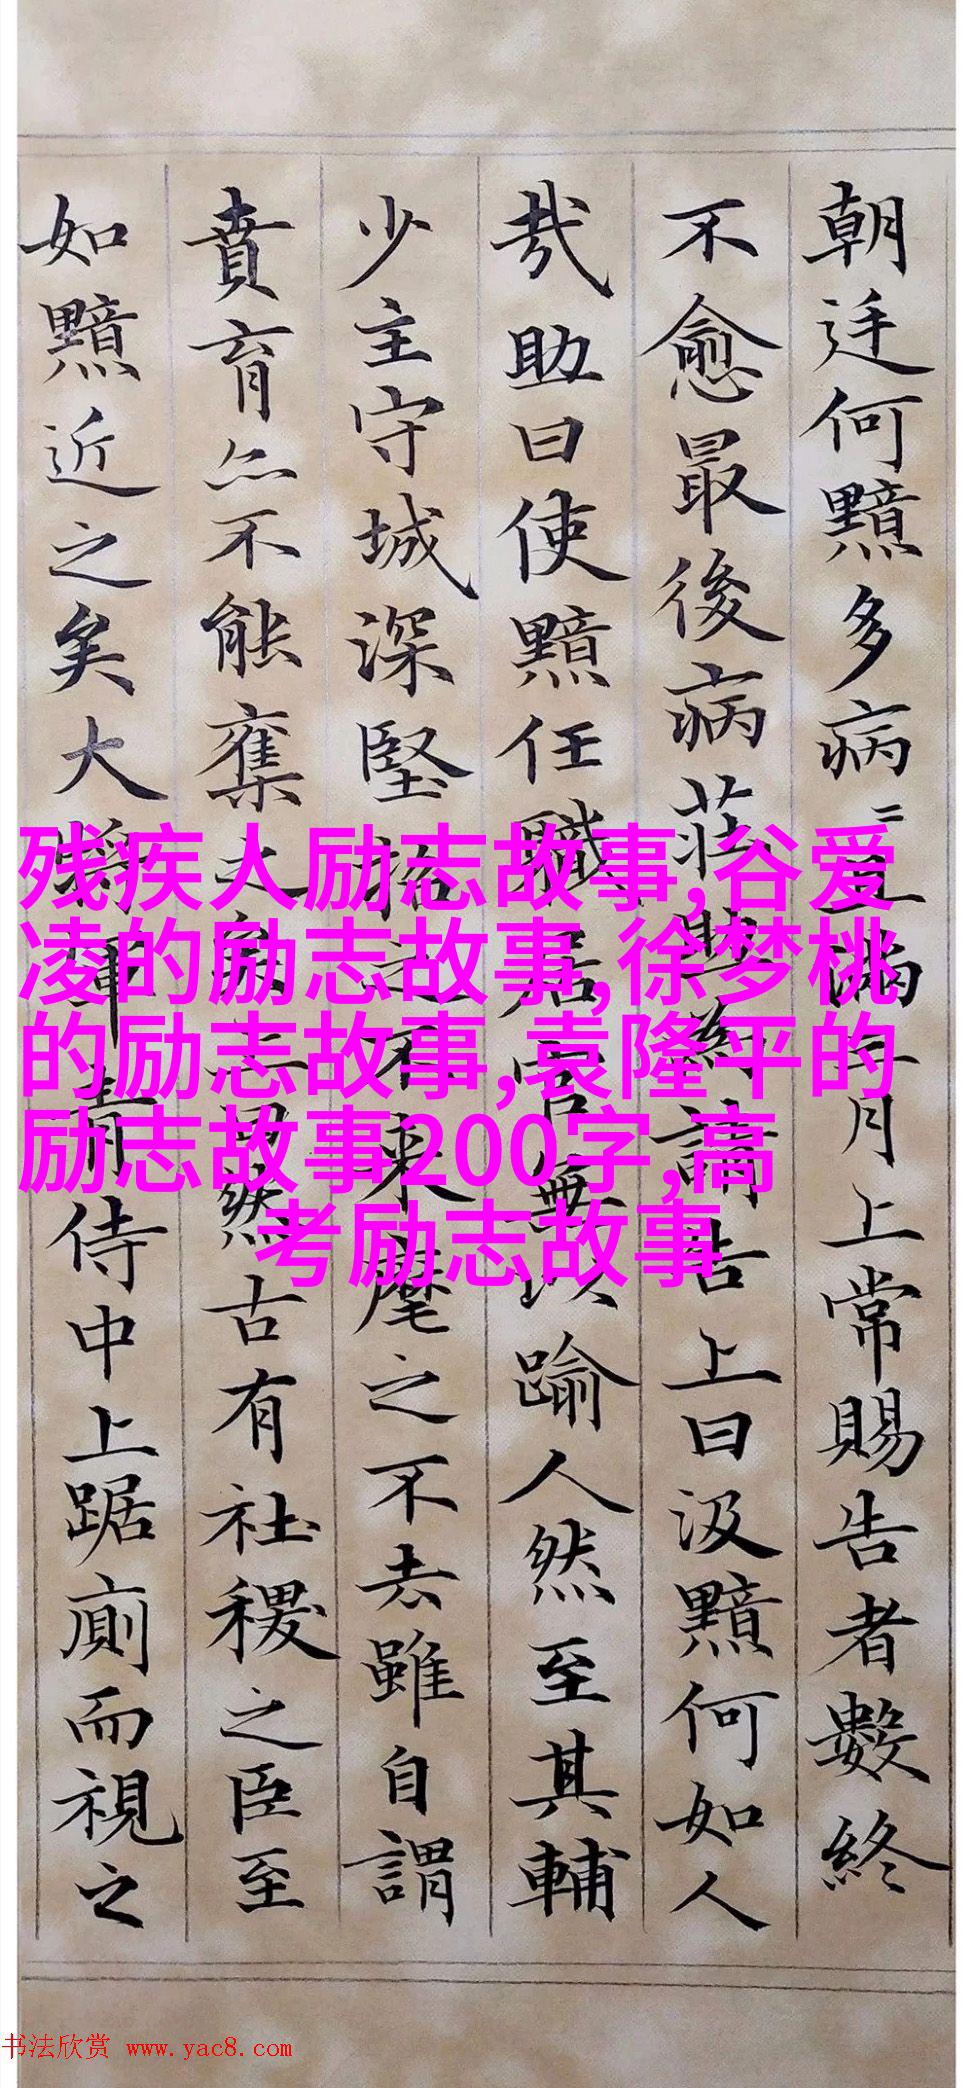 朝廷何黯多病〻且滿三月上常賜告者數終
不愈最後病莊助為請告上曰汲黯何如人
哉助曰使黯任職居官無以踰人然至其輔
少主守城深堅招之不來麾之不去雖自謂
賁育亦不能奪之矣上曰然古有社稷之臣至
如黯近之矣大將軍青侍中上踞廁而視之
残疾人励志故事,谷爱
凌的励志故事,徐梦桃
的励志故事,袁隆平的
励志故事200字,高
考励志故事
书法欣赏 www.yac8.com